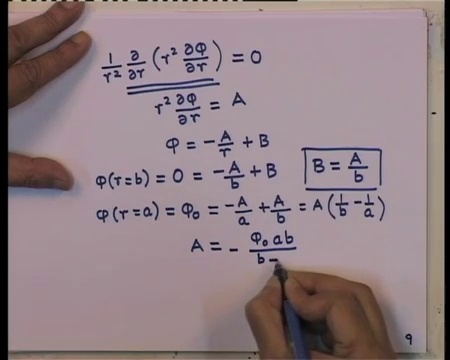 1/r² ∂/∂r (r² ∂φ/∂r) = 0
r² ∂φ/∂r = A
φ = -A/r + B
φ(r=b) = 0 = -A/b + B   B = A/b
φ(r=a) = φ₀ = -A/a + A/b = A(1/b - 1/a)
A = - φ₀ab/b-
9